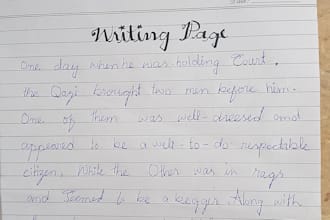 Writing Page
One day when he was holding Court.
the Qazi brought two men before him.
One of them was well-dressed and
appeared to be a well-to-do respectable
citizen, While the Other was in rags
and Seemed to be a beggar. Along with